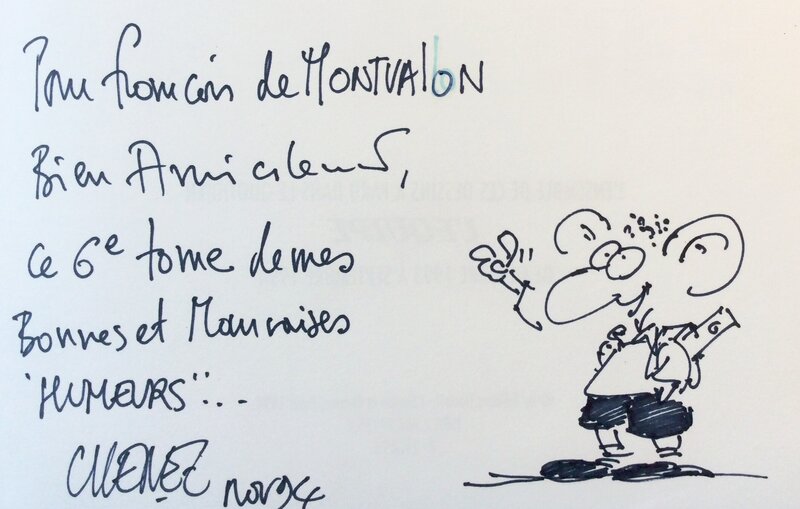 Pour François de MONTVAlON
Bien Amicalement,
ce 6e tome de mes
Bonnes et Mauvaises
"HUMEURS"...
CHENEZ nov 94
6